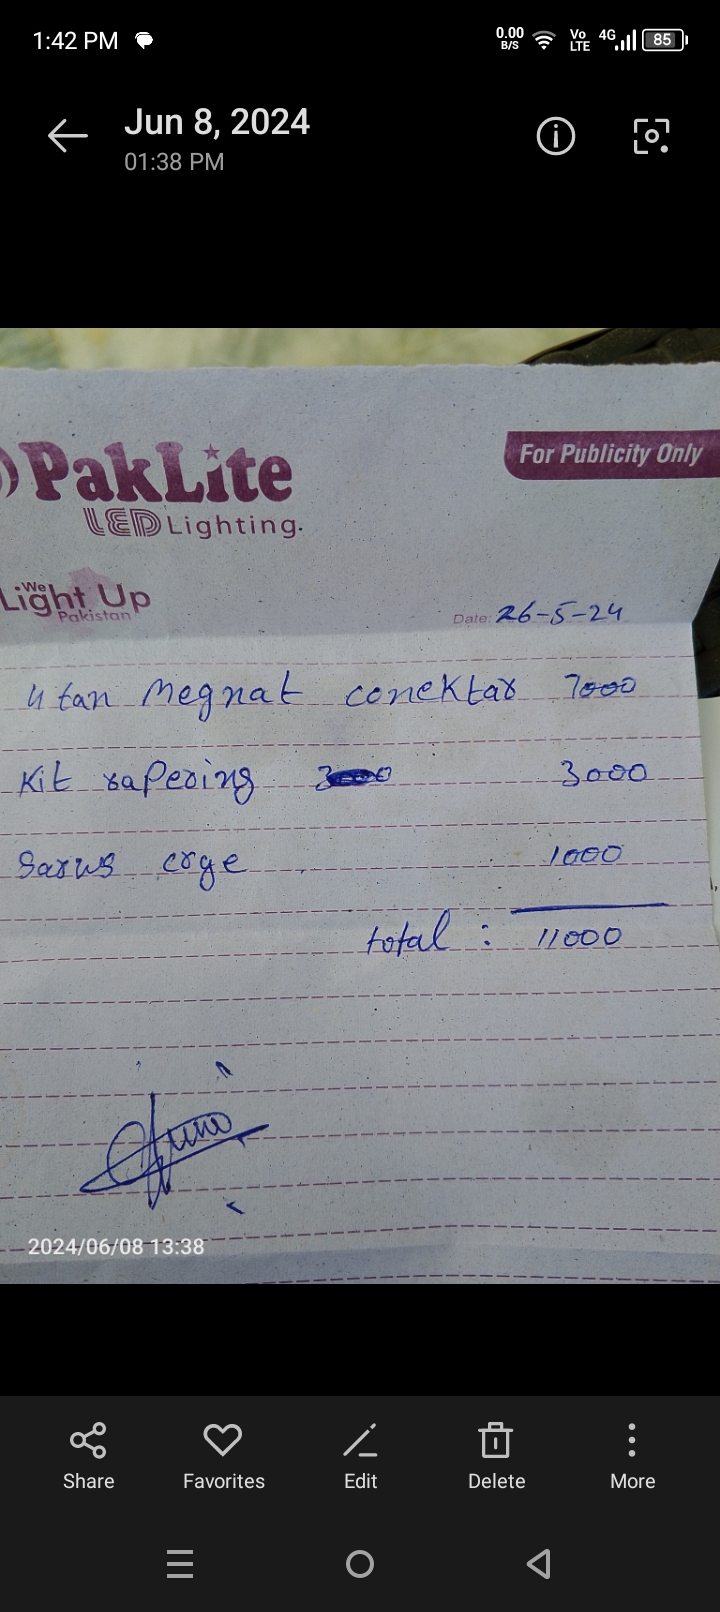 1:42 PM 0.00 B/S Vo LTE 4G 85
Jun 8, 2024
01:38 PM
PakLite
LED Lighting.
For Publicity Only
We
Light Up
Pakistan
Date: 26-5-24
4 tan Megnat conektar 7000
Kit rapering 3000
Sarws crge 1000
total : 11000
2024/06/08 13:38
Share Favorites Edit Delete More